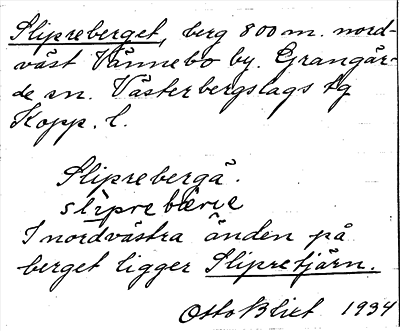 Slipreberget, berg 800 m. nord-
väst Vännebo by. Grangär-
de sn. Västerbergslags tg
Kopp. l.
Sliprebergä.
slìpre bærie
I nordvästra änden på
berget ligger Slipretjärn.
Otto Blixt 1934